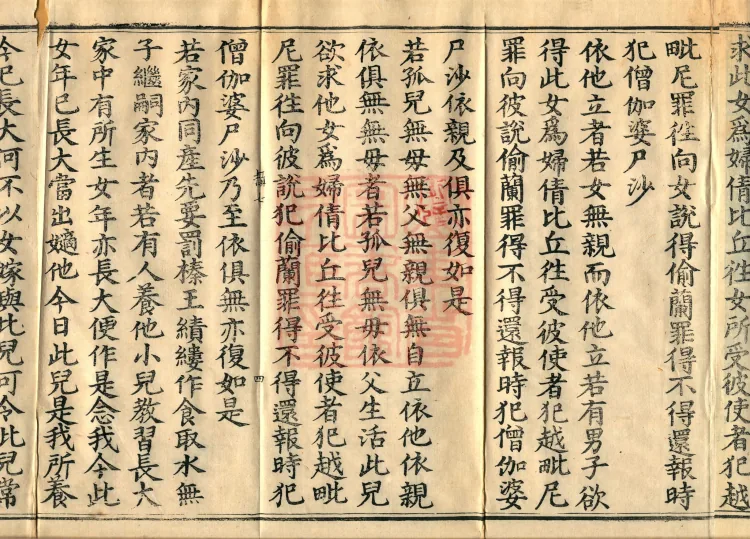 求此女為婦倩比丘往女所受彼使者犯越
毗尼罪往向女說得偷蘭罪得不得還報時
犯僧伽婆尸沙
依他立者若女無親而依他立若有男子欲
得此女為婦倩比丘往受彼使者犯越毗尼
罪向彼說偷蘭罪得不得還報時犯僧伽婆
尸沙依親及俱亦復如是
若孤兒無母無父無親俱無自立依他依親
依俱無無母者若孤兒無母依父生活此兒
欲求他女為婦倩比丘往受彼使者犯越毗
尼罪往向彼說犯偷蘭罪得不得還報時犯
僧伽婆尸沙乃至依俱無亦復如是
若家內同產先要罰榛王績縷作食取水無
子繼嗣家內者若有人養他小兒教習長大
家中有所生女年亦長大便作是念我今此
女年已長大當出嫡他今日此兒是我所養
今已長大何不以女嫁與此兒可令此兒常
七
四